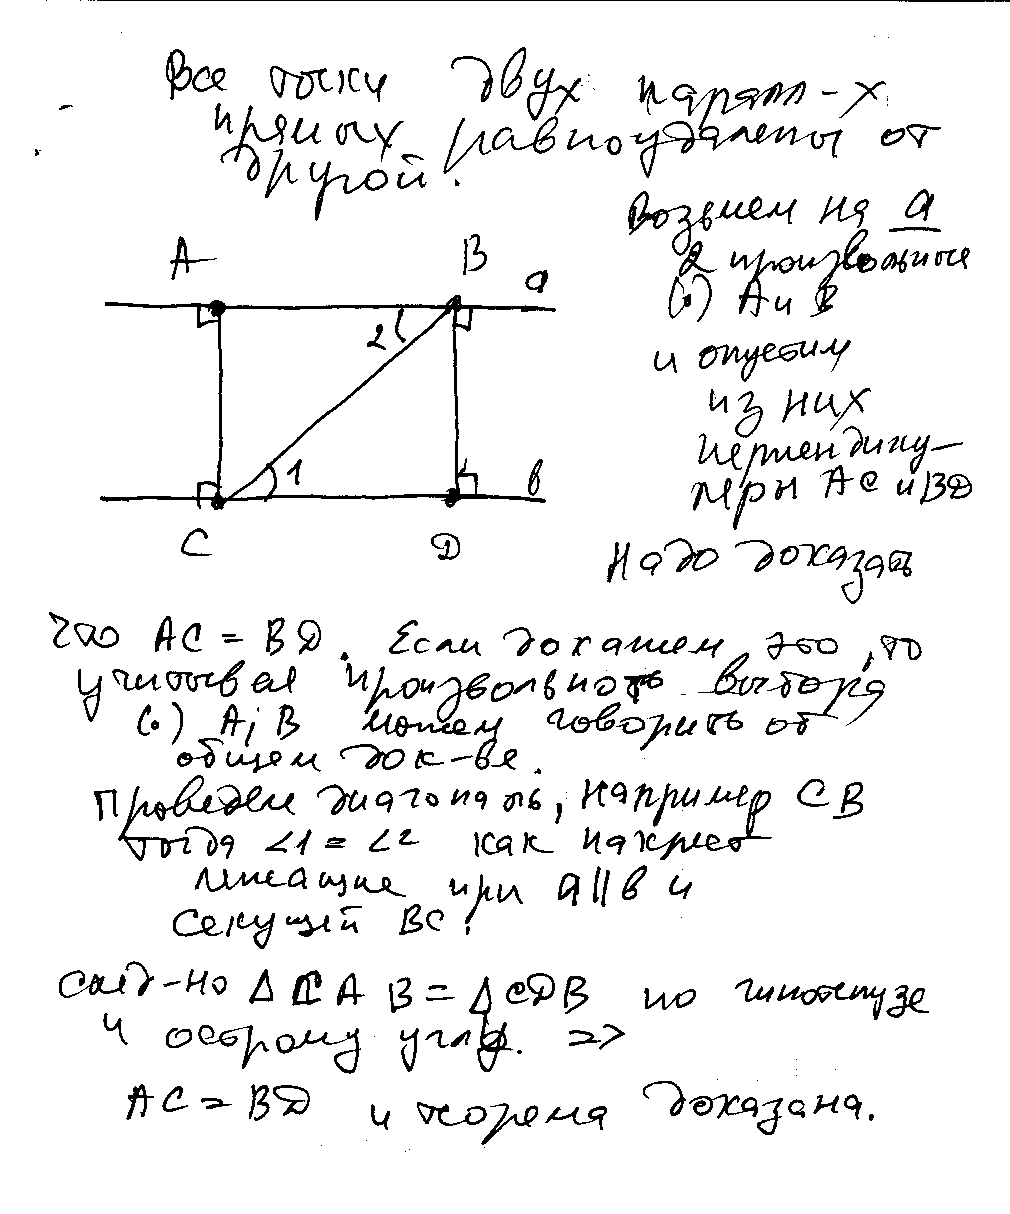 Все точки двух паралл-х
прямых равноудалены от
другой.
Возьмем на a
2 произвольные
(•) A и B
и опустим
из них
перпендику-
ляры AC и BD
A
B
a
2
1
в
C
D
Надо доказать
что AC = BD. Если докажем это, то
учитывая произвольность выбора
(•) A; B можем говорить об
общем док-ве.
Проведем диагональ, например CB
тогда ∠1 = ∠2 как накрест
лежащие при a || в и
секущей BC.
След-но Δ CAB = Δ CDB по гипотенузе
и острому углу. =>
AC = BD и теорема доказана.